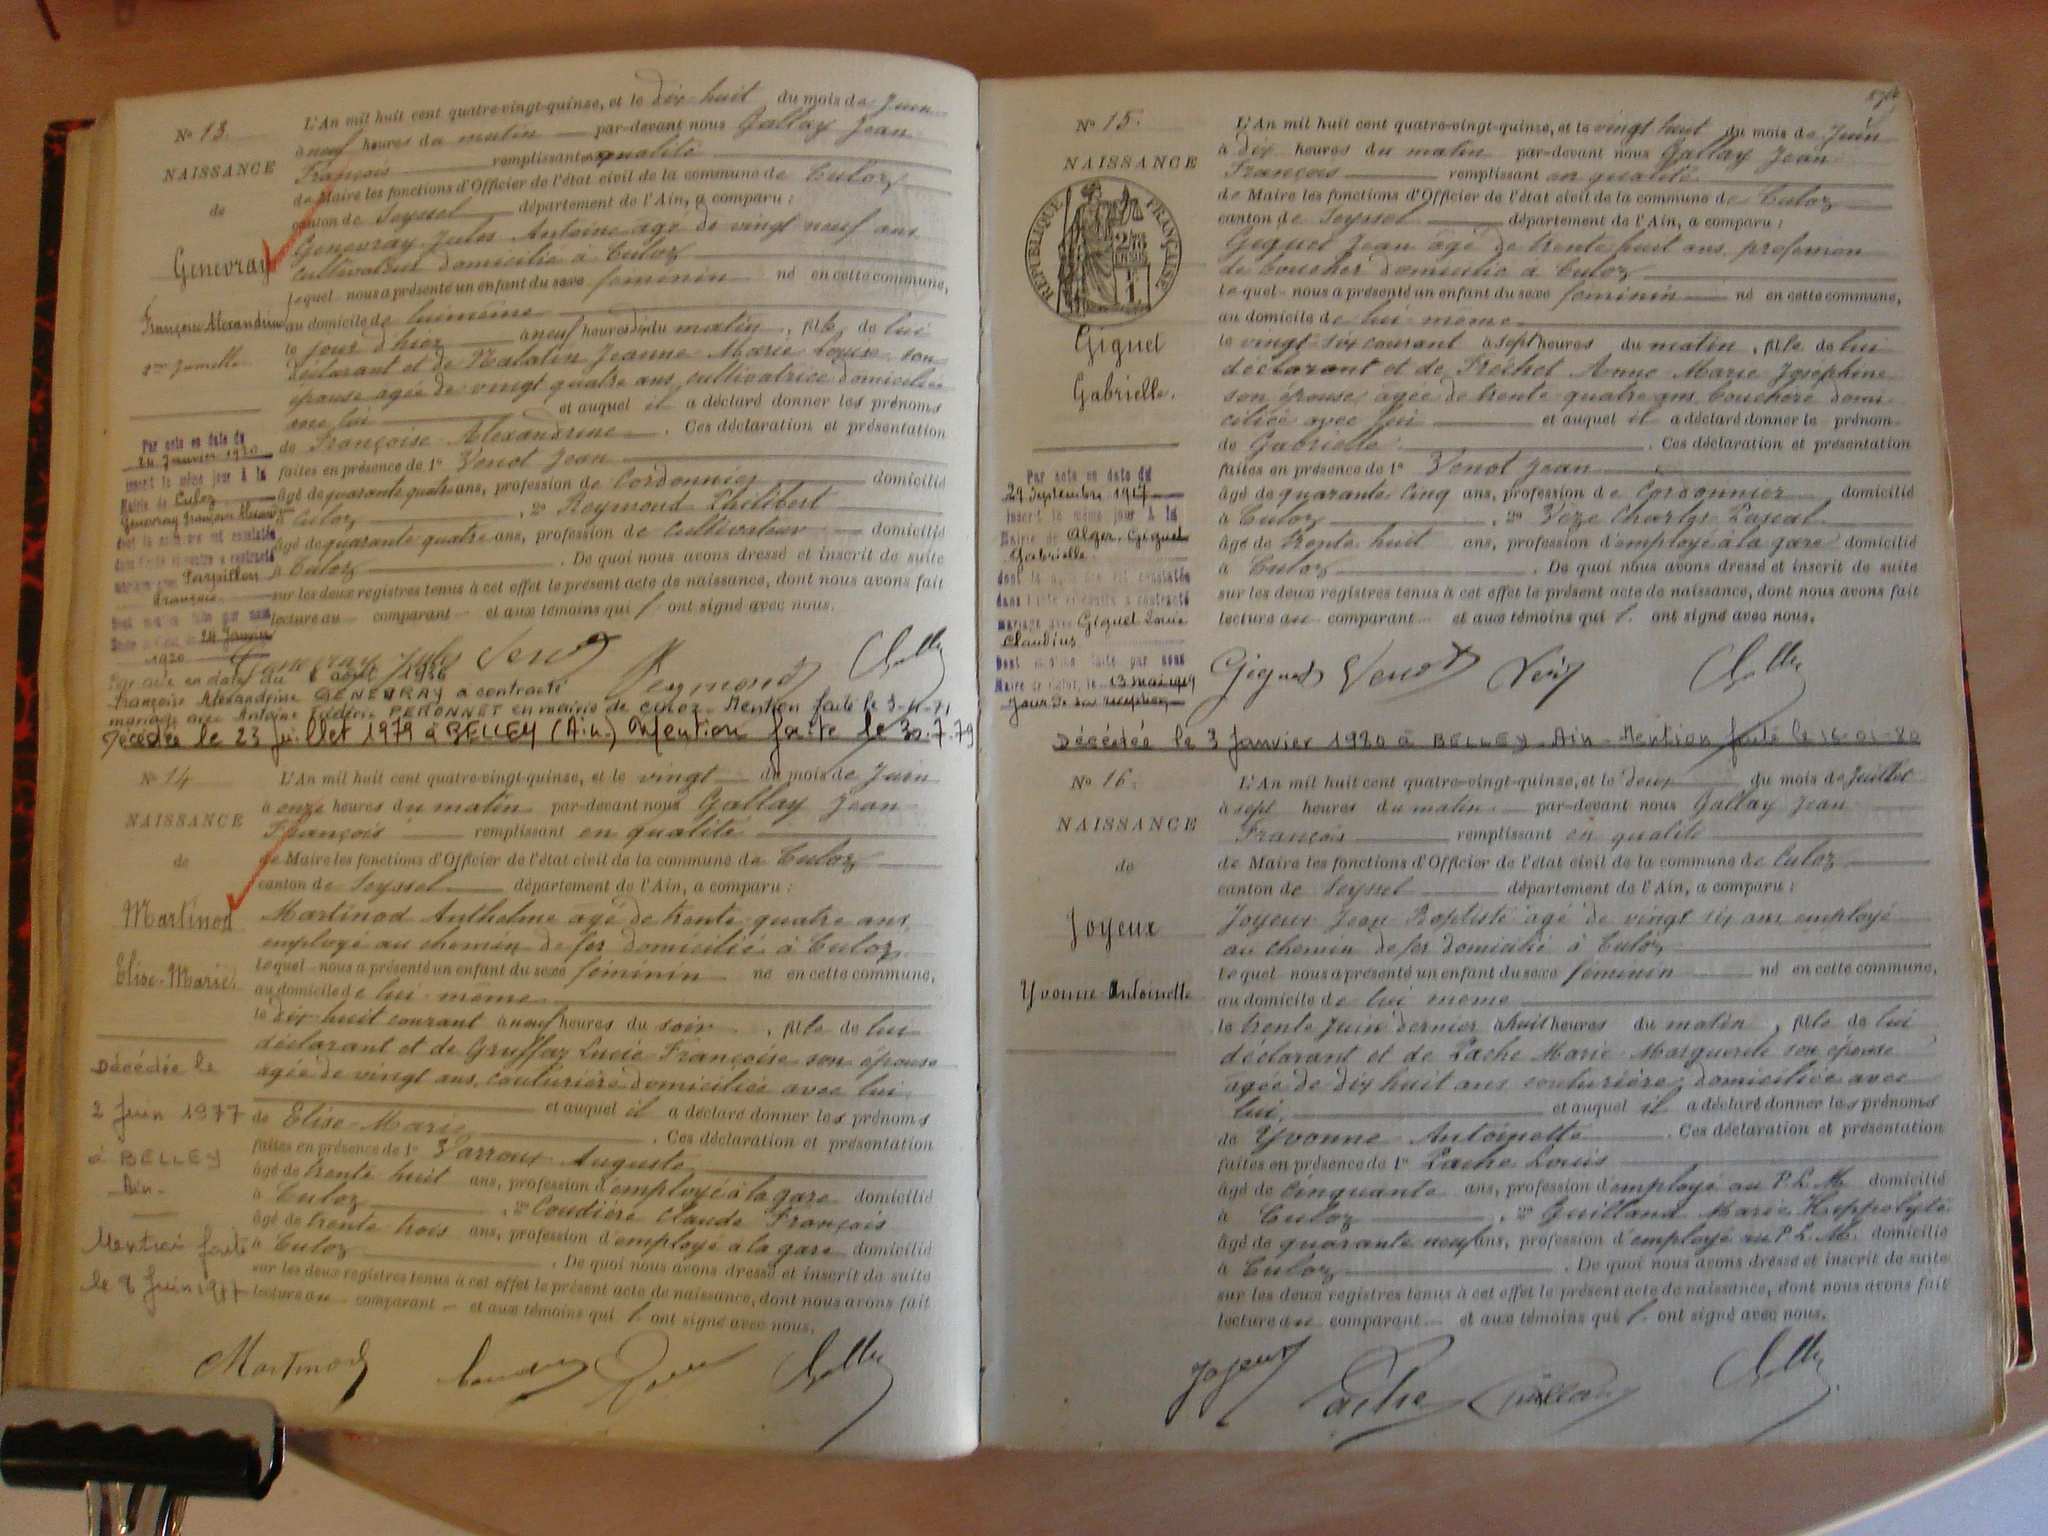 No 13.
NAISSANCE
de
Genevray
Françoise Alexandrine
2me Jumelle
L'An mil huit cent quatre-vingt-quinze, et le dix huit du mois de Juin
à neuf heures du matin par-devant nous Gallay Jean
François remplissant en qualité
de Maire les fonctions d'Officier de l'état civil de la commune de Culoz
canton de Seyssel département de l'Ain, a comparu :
Genevray Jules Antoine âgé de vingt neuf ans
cultivateur domicilié à Culoz
lequel nous a présenté un enfant du sexe féminin né en cette commune,
au domicile de lui même
le jour d'hier à neuf heures du matin, fille de lui
déclarant et de Jeanne Marie Louise son
épouse agée de vingt quatre ans, cultivatrice domiciliée
avec lui et auquel il a déclaré donner les prénoms
de Françoise Alexandrine. Ces déclaration et présentation
faites en présence de 1° Venot Jean
âgé de quarante quatre ans, profession de Cordonnier domicilié
à Culoz, 2° Reymond Philibert
âgé de quarante quatre ans, profession de cultivateur domicilié
à Culoz. De quoi nous avons dressé et inscrit de suite
sur les deux registres tenus à cet effet le présent acte de naissance, dont nous avons fait
lecture au comparant et aux témoins qui l'ont signé avec nous.
Par acte en date du
24 Janvier 1920
inscrit le même jour à la
Mairie de Culoz
Genevray Françoise
dont la naissance est constatée
dans l'acte ci-contre a contracté
mariage avec Parpillon
François
Dont mention faite par nous
24 Janvier
1920
Genevray Jules Venot Reymond
Par acte en date du 6 août 1936
Françoise Alexandrine GENEVRAY a contracté
mariage avec Antoine Frédéric PERONNET en mairie de CULOZ. Mention faite le 3-11-71
Décédée le 23 Juillet 1979 à BELLEY (Ain.) Mention faite le 30.7.79
No 14
NAISSANCE
de
Martinod
Elise-Marie
L'An mil huit cent quatre-vingt-quinze, et le vingt du mois de Juin
à onze heures du matin par-devant nous Gallay Jean
François remplissant en qualité
de Maire les fonctions d'Officier de l'état civil de la commune de Culoz
canton de Seyssel département de l'Ain, a comparu :
Martinod Anthelme âgé de trente quatre ans,
employé au chemin de fer domicilié à Culoz
lequel nous a présenté un enfant du sexe féminin né en cette commune,
au domicile de lui même
le dix huit courant à neuf heures du soir, fille de lui
déclarant et de Gruffaz Lucie Françoise son épouse
agée de vingt ans, couturière domiciliée avec lui
et auquel il a déclaré donner les prénoms
de Elise-Marie. Ces déclaration et présentation
faites en présence de 1° Varroux Auguste
âgé de trente huit ans, profession d'employé à la gare domicilié
à Culoz, 2° Coudière Claude François
âgé de trente trois ans, profession d'employé à la gare domicilié
à Culoz. De quoi nous avons dressé et inscrit de suite
sur les deux registres tenus à cet effet le présent acte de naissance, dont nous avons fait
lecture au comparant et aux témoins qui l'ont signé avec nous.
Décédée le
2 Juin 1977
à BELLEY
-Ain-
Mention faite
le 8 Juin 1977
Martinod
No 15.
NAISSANCE
RÉPUBLIQUE FRANÇAISE
Giguet
Gabrielle.
L'An mil huit cent quatre-vingt-quinze, et le vingt huit du mois de Juin
à dix heures du matin par-devant nous Gallay Jean
François remplissant en qualité
de Maire les fonctions d'Officier de l'état civil de la commune de Culoz
canton de Seyssel département de l'Ain, a comparu :
Giguet Jean âgé de trente huit ans, profession
de boucher domicilié à Culoz
lequel nous a présenté un enfant du sexe féminin né en cette commune,
au domicile de lui-même
le vingt-six courant à sept heures du matin, fille de lui
déclarant et de Fréchet Anne Marie Josephine
son épouse, agée de trente quatre ans, bouchère domi-
ciliée avec lui et auquel il a déclaré donner le prénom
de Gabrielle. Ces déclaration et présentation
faites en présence de 1° Venot Jean
âgé de quarante cinq ans, profession de cordonnier domicilié
à Culoz, 2° Vèze Charles Pascal
âgé de trente huit ans, profession d'employé à la gare domicilié
à Culoz. De quoi nous avons dressé et inscrit de suite
sur les deux registres tenus à cet effet le présent acte de naissance, dont nous avons fait
lecture au comparant et aux témoins qui l'ont signé avec nous.
Par acte en date du
29 Septembre 1917
inscrit le même jour à la
Mairie de Alger, Giguet
Gabrielle
dont la naissance est constatée
dans l'acte ci-contre a contracté
mariage avec Giguet Louis
Claudius
Dont mention faite par nous
Maire de Culoz, le 13 mai 1919
jour de sa réception
Giguet Venot Vèze
Décédée le 3 Janvier 1980 à BELLEY - Ain - Mention faite le 16-01-80
No 16.
NAISSANCE
de
Joyeux
Yvonne-Antoinette
L'An mil huit cent quatre-vingt-quinze, et le deux du mois de Juillet
à sept heures du matin par-devant nous Gallay Jean
François remplissant en qualité
de Maire les fonctions d'Officier de l'état civil de la commune de Culoz
canton de Seyssel département de l'Ain, a comparu :
Joyeux Jean Baptiste âgé de vingt six ans employé
au chemin de fer domicilié à Culoz
lequel nous a présenté un enfant du sexe féminin né en cette commune,
au domicile de lui même
le trente Juin dernier à huit heures du matin, fille de lui
déclarant et de Pache Marie Marguerite son épouse
agée de dix huit ans couturière, domiciliée avec
lui, et auquel il a déclaré donner les prénoms
de Yvonne Antoinette. Ces déclaration et présentation
faites en présence de 1° Pache Louis
âgé de cinquante ans, profession d'employé au P.L.M. domicilié
à Culoz, 2° Guilland Marie Hippolyte
âgé de quarante neuf ans, profession d'employé au P.L.M. domicilié
à Culoz. De quoi nous avons dressé et inscrit de suite
sur les deux registres tenus à cet effet le présent acte de naissance, dont nous avons fait
lecture au comparant et aux témoins qui l'ont signé avec nous.
Joyeux Pache Guilland